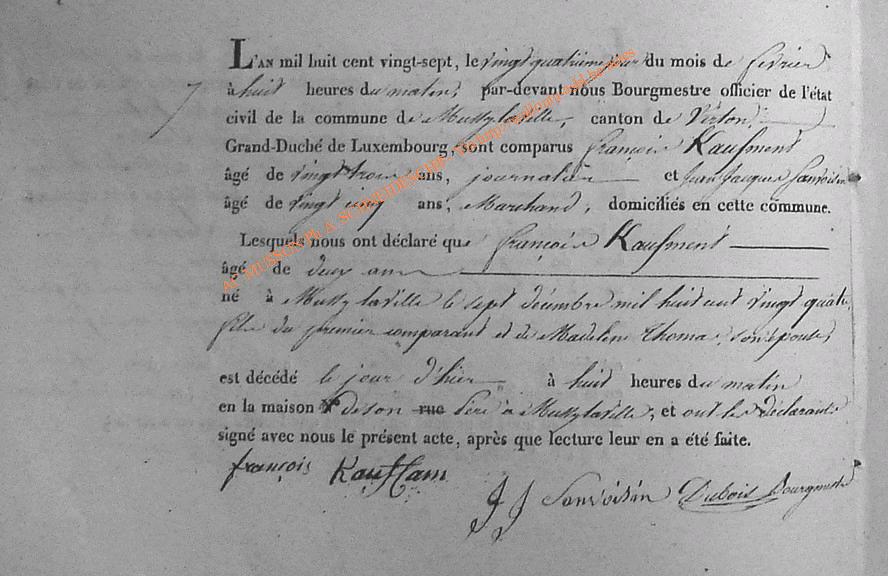 L'AN mil huit cent vingt-sept, le vingt quatrieme jour du mois de fevrier
7 à huit heures du matin, par-devant nous Bourgmestre officier de l'état
civil de la commune de Mussy la ville, canton de Virton,
Grand-Duché de Luxembourg, sont comparus françois Kaufment
âgé de vingt trois ans, journalier et Jean Jacques Sonvoisin
âgé de vingt cinq ans, Marchand, domiciliés en cette commune.
Lesquels nous ont déclaré que françois Kaufment
âgé de deux ans
né à Mussy la ville le sept décembre mil huit cent vingt quatre,
fils du premier comparant et de Madeleine Thomas, son épouse,
est décédé le jour d'hier à huit heures du matin
en la maison N° de son rue Pere à Mussy la ville, et ont les déclarants
signé avec nous le présent acte, après que lecture leur en a été faite.
françois Kauffam
J J Sonvoisin Dubois Bourgmestre
AC MUSSON Ph. A. SCHNEIDESCH